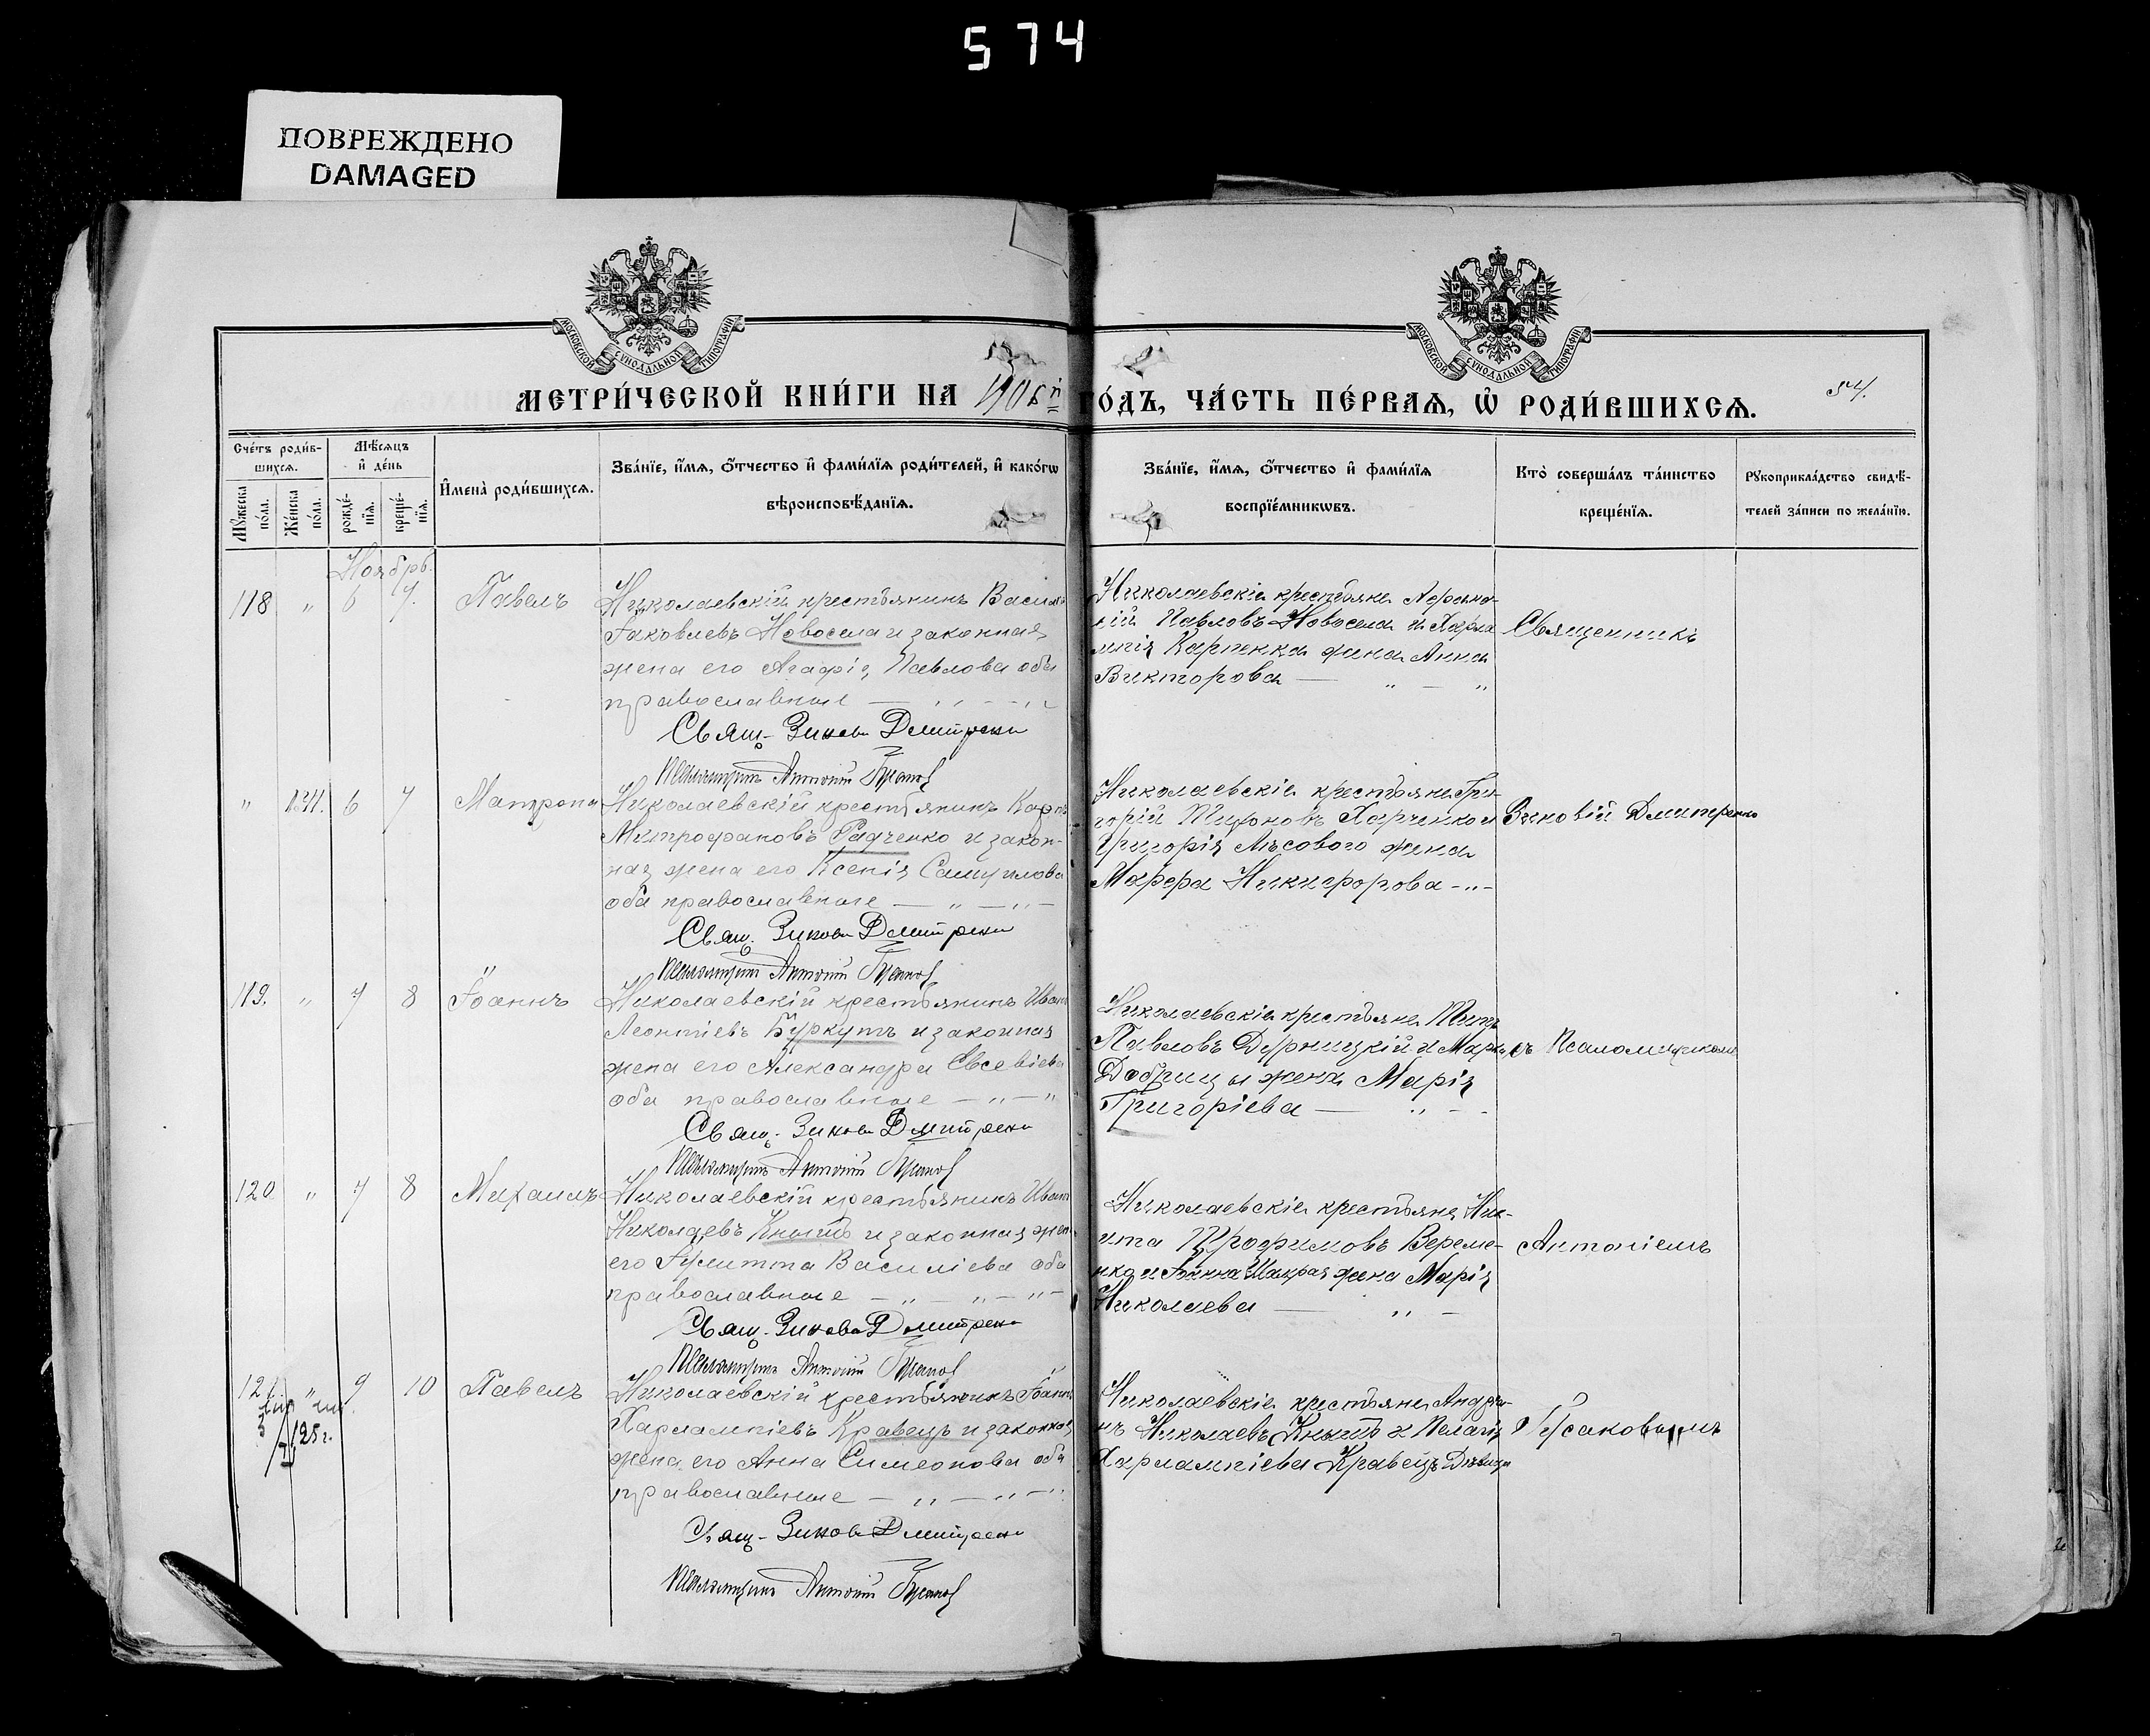 574
ПОВРЕЖДЕНО
DAMAGED
МОСКОВСКОЙ СѴНОДАЛЬНОЙ ТИПОГРАФІИ
МОСКОВСКОЙ СѴНОДАЛЬНОЙ ТИПОГРАФІИ
МЕТРИ́ЧЕСКОЙ КНИ́ГИ НА 1906й ГО́ДЪ, ЧА́СТЬ ПЕ́РВАѦ, Ѡ РОДИ́ВШИХСѦ.
54.
Сче́тъ роди́в-
шихсѧ.
Мꙋжеска по́ла.
Же́нска по́ла.
Мѣ́сѧцъ
и҆ де́нь
рожде́-
нїѧ.
креще́-
нїѧ.
И҆мена̀ роди́вшихсѧ.
Зва́нїе, и҆́мѧ, ѻ҆́тчество и҆ фами́лїѧ роди́телей, и҆ како́гѡ
вѣроисповѣ́данїѧ.
Зва́нїе, и҆́мѧ, ѻ҆́тчество и҆ фами́лїѧ
воспрїе́мникѡвъ.
Кто̀ соверша́лъ та́инство
креще́нїѧ.
Рꙋкоприкла́дство свидѣ́-
телей за́писи по жела́нїю.
Ноябрь.
118 " 6 7. Павелъ
Николаевскій крестьянинъ Василій
Іаковлевъ Новосела и законная
жена его Агафія Павлова оба
православные — " — "
Свящ. Зиновій Дмитренко
Псаломщикъ Антоній Гусаков
Николаевскіе крестьяне
Павловъ Новосела и Харла
мпія Карпенка жена Анна
Викторова — " — "
Священникъ
" 134. 6 7 Матрона
Николаевскій крестьянинъ Карпъ
Митрофановъ Радченко и закон-
ная жена его Ксенія Самуилова
оба православные — " — " —
Свящ. Зиновій Дмитренко
Псаломщикъ Антоній Гусаков
Николаевскіе крестьяне Гри-
горій Харченко и
Григорія Лѣсового жена
Марфа Никифорова — " —
Зиновій Дмитренко
119. " 7 8 Іоаннъ
Николаевскій крестьянинъ Иванъ
Леонтіевъ Буркутъ и законная
жена его Александра Евсевіева
оба православные — " — "
Свящ. Зиновій Дмитренко
Псаломщикъ Антоній Гусаков
Николаевскіе крестьяне Титъ
Павловъ Дерницкій и Марка
Добрицы жена Марія
Григоріева — " — -
съ Псаломщикомъ
120 " 7 8 Михаилъ
Николаевскій крестьянинъ Иванъ
Николаевъ Кнышъ и законная жен.
его Іулитта Василіева оба
православные — " — " — " —
Свящ. Зиновій Дмитренко
Псаломщикъ Антоній Гусаков
Николаевскіе крестьяне Ник-
ита Трофимовъ Береме-
нко и жена Марія
Николаева — " —
Антоніемъ
121. " 9 10 Павелъ
125 г.
Николаевскій крестьянинъ Іоаннъ
Харлампіевъ Кравецъ и законная
жена его Анна Симеонова оба
православные — " — " — "
Свящ. Зиновій Дмитренко
Псаломщикъ Антоній Гусаков
Николаевскіе крестьяне
Николаевъ Кнышъ и Пелагія
Харлампіева Кравецъ Дѣвица
Гусаковымъ